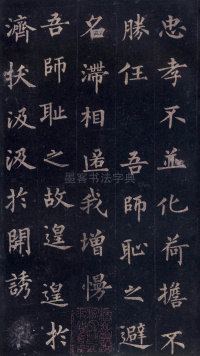 忠孝不並化荷擔不
勝任　吾師恥之避
名滯相匿我增慢
吾師耻之故遑遑於
濟扶汲汲於開誘
墨客书法字典